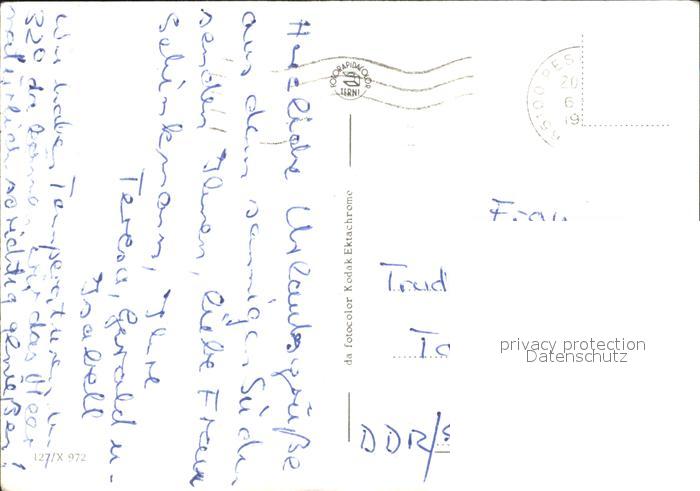 Herzliche Urlaubsgrüße
aus dem sonnigen Süden
senden Ihnen, liebe Frau
Schinkmann, Ihre
Teresa, Gerald u.
Isabell
Wir haben Temperaturen um
32° da kann man das Meer
natürlich so richtig genießen!
127/X 972
da fotocolor Kodak Ektachrome
FOTORAPIDACOLOR
TERNI
65100 PES
20
6
19
Frau
Trud
To
DDR/S
privacy protection
Datenschutz